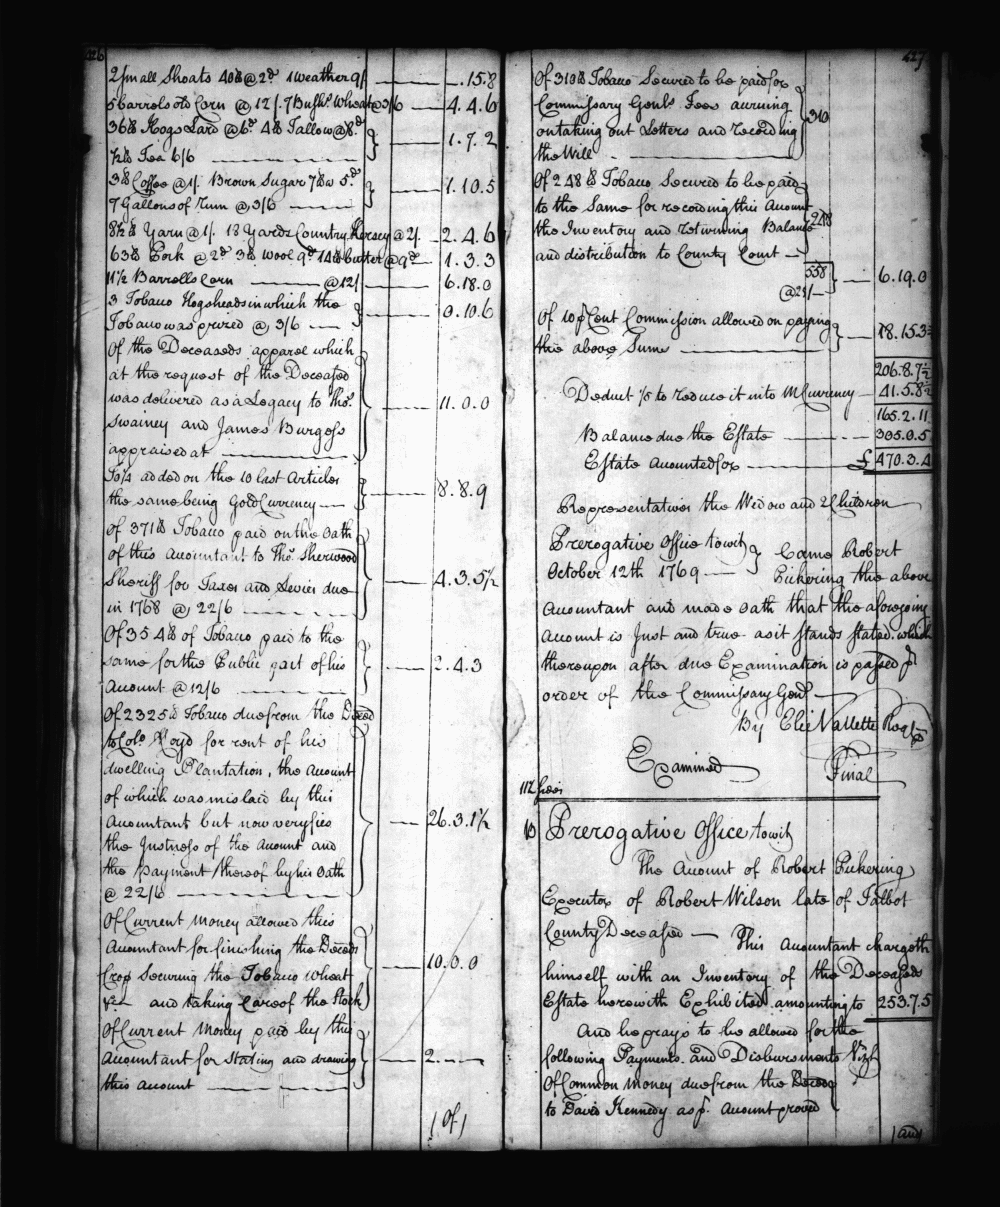 426
2 Small Shoats 40 lb @ 2d 1 Weather 9/ .15.8
5 barrels old Corn @ 12/. 7 Bushls Wheat @ 3/6 4.4.6
36 lb Hogs Lard @ 6d 4 lb Tallow @ 8d
½ lb Tea 6/6 1.7.2
3 lb Coffee @ 1/. Brown Sugar 7 lb 5d
7 Gallons of Rum @ 3/6 1.10.5
8½ lb Yarn @ 1/. 18 Yards Country Kersey @ 2/. 2.4.6
63 lb Pork @ 2d 3 lb wool 9d 14 lb butter @ 9d 1.3.3
11½ Barrells Corn @ 12/ 6.18.0
3 Tobacco Hogsheads in which the
Tobacco was prized @ 3/6 0.10.6
Of the Deceaseds apparel which
at the request of the Deceased
was delivered as a Legacy to Thos.
Swainey and James Burgess
appraised at 11.0.0
added on the 10 last Articles
the same being Gold Currency 8.8.9
Of 371 lb Tobacco paid on the Oath
of this Accountant to Thos. Sherwood
Sheriff for Taxes and Levies due
in 1768 @ 22/6 4.3.5½
Of 354 lb of Tobacco paid to the
same for the Public part of his
Account @ 12/6 2.4.3
Of 2325 lb Tobacco due from the Deced
to Colo. Loyd for rent of his
dwelling Plantation, the Account
of which was mislaid by this
Accountant but now veryfies
the Justness of the Account and
the Payment thereof by his Oath
@ 22/6 26.3.1½
Of Current Money allowed this
Accountant for finishing the Deceds
Crop Securing the Tobacco Wheat
&c and taking Care of the Stock 10.0.0
Of Current Money paid by this
Accountant for Stating and drawing
this Account 2.
/ Of /
427
Of 310 lb Tobacco Secured to be paid for
Commissary Genls. Fees accruing
on taking out Letters and recording
the Will 310
Of 248 lb Tobacco Secured to be paid
to the Same for recording this Account
the Inventory and returning Balance 248
and distribution to County Court
558
@ 25/ 6.19.0
Of 10 p Cent Commission allowed on paying
the above Sume 18.15.3
206.8.7½
Deduct 1/5 to reduce it into M Currency 41.5.8½
165.2.11
Balance due the Estate 305.0.5
Estate Accounted for £ 470.3.4
Representatives the Widow and 2 Children
Prerogative Office towit
October 12th 1769 Came Robert
Pickering the above
Accountant and made Oath that the aforegoing
Account is Just and true as it stands stated. which
thereupon after due Examination is passed p
order of the Commissary Genl
By Elie Vallette Regr
Examined Final
112 Sides
Prerogative Office towit
The Account of Robert Pickering
Executor of Robert Wilson late of Talbot
County Deceased This Accountant chargeth
himself with an Inventory of the Deceaseds
Estate herewith Exhibited amounting to 253.7.5
And he prays to be allowed for the
following Payments and Disbursments Vizt
Of Common Money due from the Deced
to David Kennedy as p. Account proved
/ and